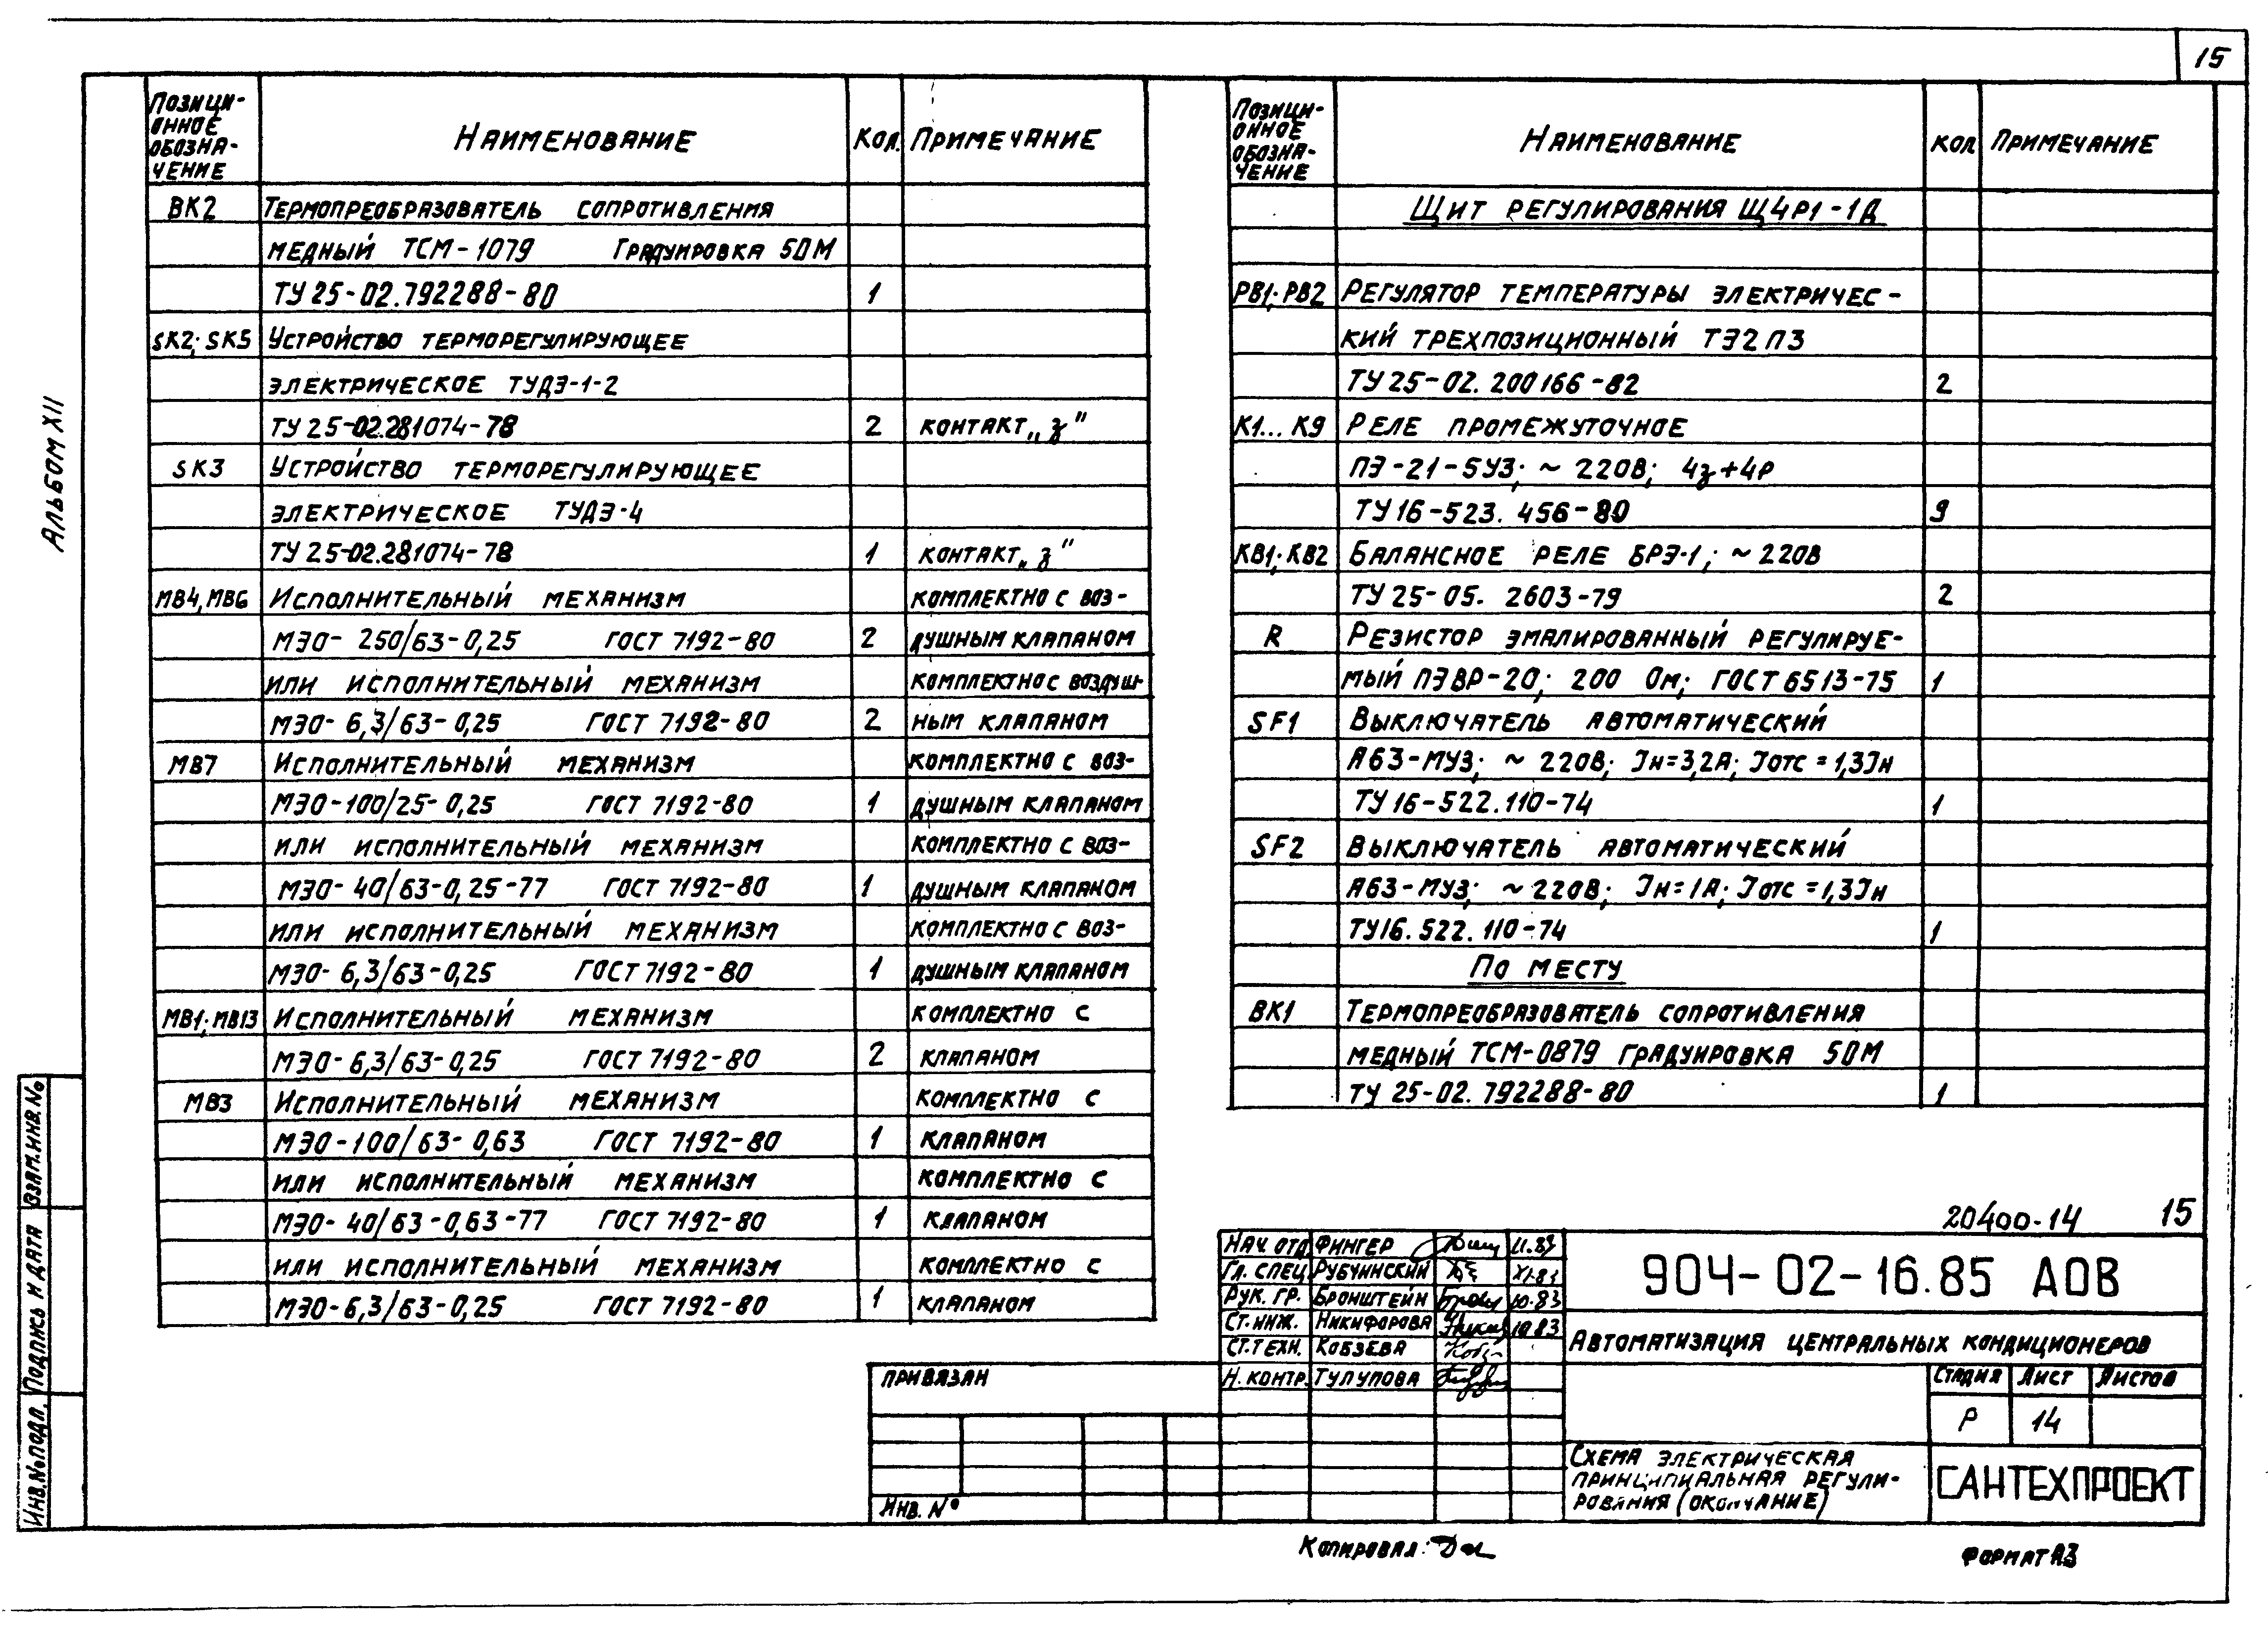 15
Альбом XII
Позици-
онное
обозна-
чение
Наименование
Кол.
Примечание
ВК2 Термопреобразователь сопротивления
медный ТСМ-1079 Градуировка 50М
ТУ 25-02.792288-80 1
SK2; SK5 Устройство терморегулирующее
электрическое ТУДЭ-1-2
ТУ 25-02.281074-78 2 контакт „з"
SK3 Устройство терморегулирующее
электрическое ТУДЭ-4
ТУ 25-02.281074-78 1 контакт „з"
МВ4, МВ6 Исполнительный механизм комплектно с воз-
МЭО-250/63-0,25 ГОСТ 7192-80 2 душным клапаном
или исполнительный механизм комплектно с воздуш-
МЭО-6,3/63-0,25 ГОСТ 7192-80 2 ным клапаном
МВ7 Исполнительный механизм комплектно с воз-
МЭО-100/25-0,25 ГОСТ 7192-80 1 душным клапаном
или исполнительный механизм комплектно с воз-
МЭО-40/63-0,25-77 ГОСТ 7192-80 1 душным клапаном
или исполнительный механизм комплектно с воз-
МЭО-6,3/63-0,25 ГОСТ 7192-80 1 душным клапаном
МВ1; МВ13 Исполнительный механизм комплектно с
МЭО-6,3/63-0,25 ГОСТ 7192-80 2 клапаном
МВ3 Исполнительный механизм комплектно с
МЭО-100/63-0,63 ГОСТ 7192-80 1 клапаном
или исполнительный механизм комплектно с
МЭО-40/63-0,63-77 ГОСТ 7192-80 1 клапаном
или исполнительный механизм комплектно с
МЭО-6,3/63-0,25 ГОСТ 7192-80 1 клапаном
Позици-
онное
обозна-
чение
Наименование
Кол
Примечание
Щит регулирования Щ4Р1-1Д
РВ1; РВ2 Регулятор температуры электричес-
кий трехпозиционный ТЭ2П3
ТУ 25-02.200166-82 2
К1... К9 Реле промежуточное
ПЭ-21-5У3; ~ 220В; 4з+4р
ТУ 16-523.456-80 9
КВ1; КВ2 Балансное реле БРЭ-1; ~ 220В
ТУ 25-05.2603-79 2
R Резистор эмалированный регулируе-
мый ПЭВР-20; 200 Ом; ГОСТ 6513-75 1
SF1 Выключатель автоматический
А63-МУ3; ~ 220В; Iн=3,2А; Iотс=1,3Iн
ТУ 16-522.110-74 1
SF2 Выключатель автоматический
А63-МУ3; ~220В; Iн=1А; Iотс=1,3Iн
ТУ16.522.110-74 1
По месту
ВК1 Термопреобразователь сопротивления
медный ТСМ-0879 градуировка 50М
ТУ 25-02.792288-80 1
20400-14 15
Нач. отд Фингер 11.83
Гл. спец Рубчинский XI.83
Рук. гр. Бронштейн 10.83
Ст. инж. Никифорова 10.83
Ст. техн. Кобзева
Н. контр. Тулупова
904-02-16.85 АОВ
Автоматизация центральных кондиционеров
Стадия Лист Листов
Р 14
Схема электрическая
принципиальная регули-
рования (окончание)
САНТЕХПРОЕКТ
Привязан
Инв. №
Взам. инв. №
Подпись и дата
Инв. № подл.
Копировал:
Формат А3